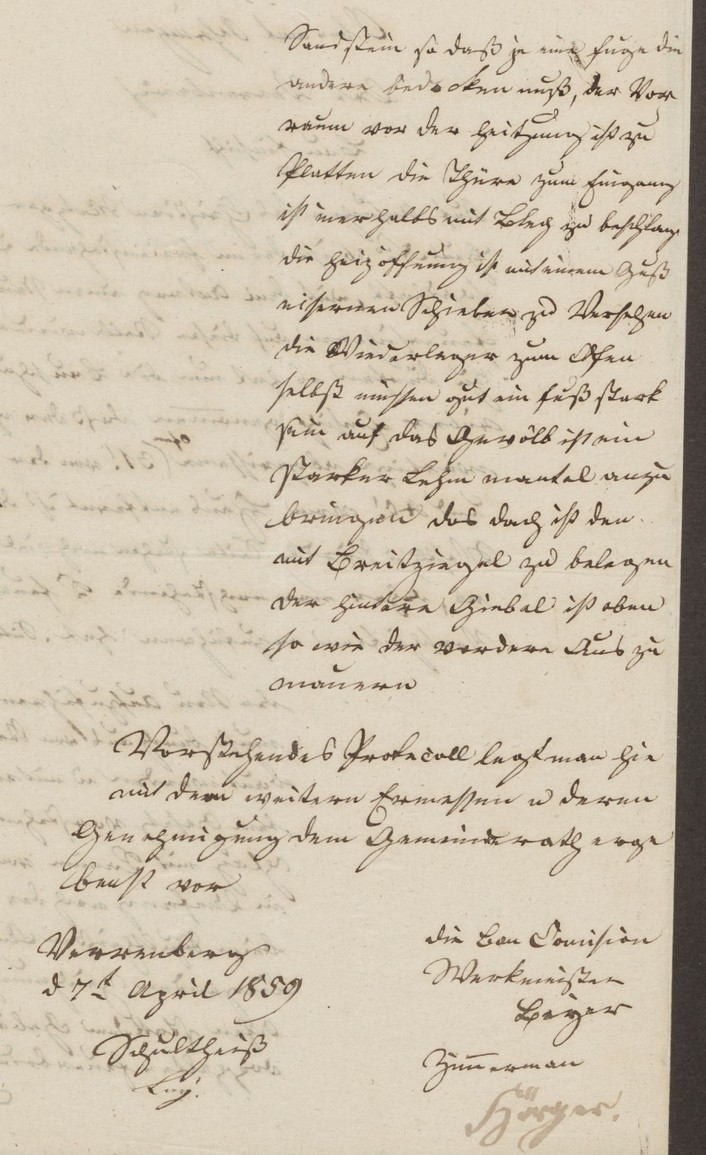 Sandstein so daß je eine Fuge die
andere bedecken muß, der Vor
raum vor der Heitzung ist zu
Platten die Thüre zum Eingang
ist inerhalbs mit Blech zu beschlag
die Heizöffnung ist mit einem Guß
eisernen Schieber zu Versehen
die Wiederlager zum Ofen
selbst müssen gut ein Fuß stark
sein auf das Gewölb ist ein
starker Lehm mantel anzu
bringen das dach ist den
mit Breitziegel zu belegen
der hintere Giebel ist oben
so wie der vordere Aus zu
mauern
Vorstehendes Protocoll legt man hie
mit dem weitern Ermessen u deren
Genehmigung dem Gemeinderath erge
benst vor
Verrenberg
d 7t April 1859
Schultheiß
die Bau Comision
Werkmeister
Beyer
Zimmerman
Hörger.